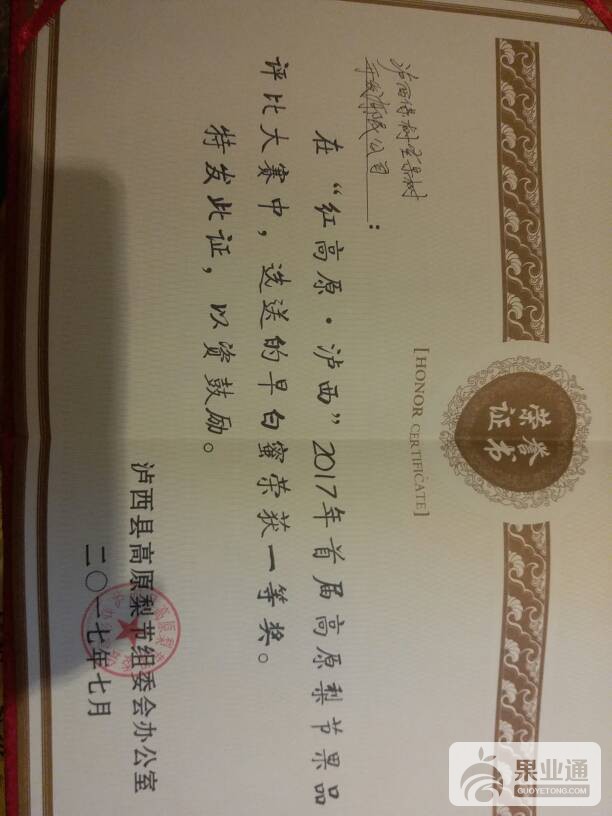 荣誉
证书
[HONOR CERTIFICATE]
开发有限公司:
在“红高原·泸西”2017年首届高原梨节果品
评比大赛中，选送的早白蜜荣获一等奖。
特发此证，以资鼓励。
泸西县高原梨节组委会办公室
二〇一七年七月
果业通
GUOYETONG.COM